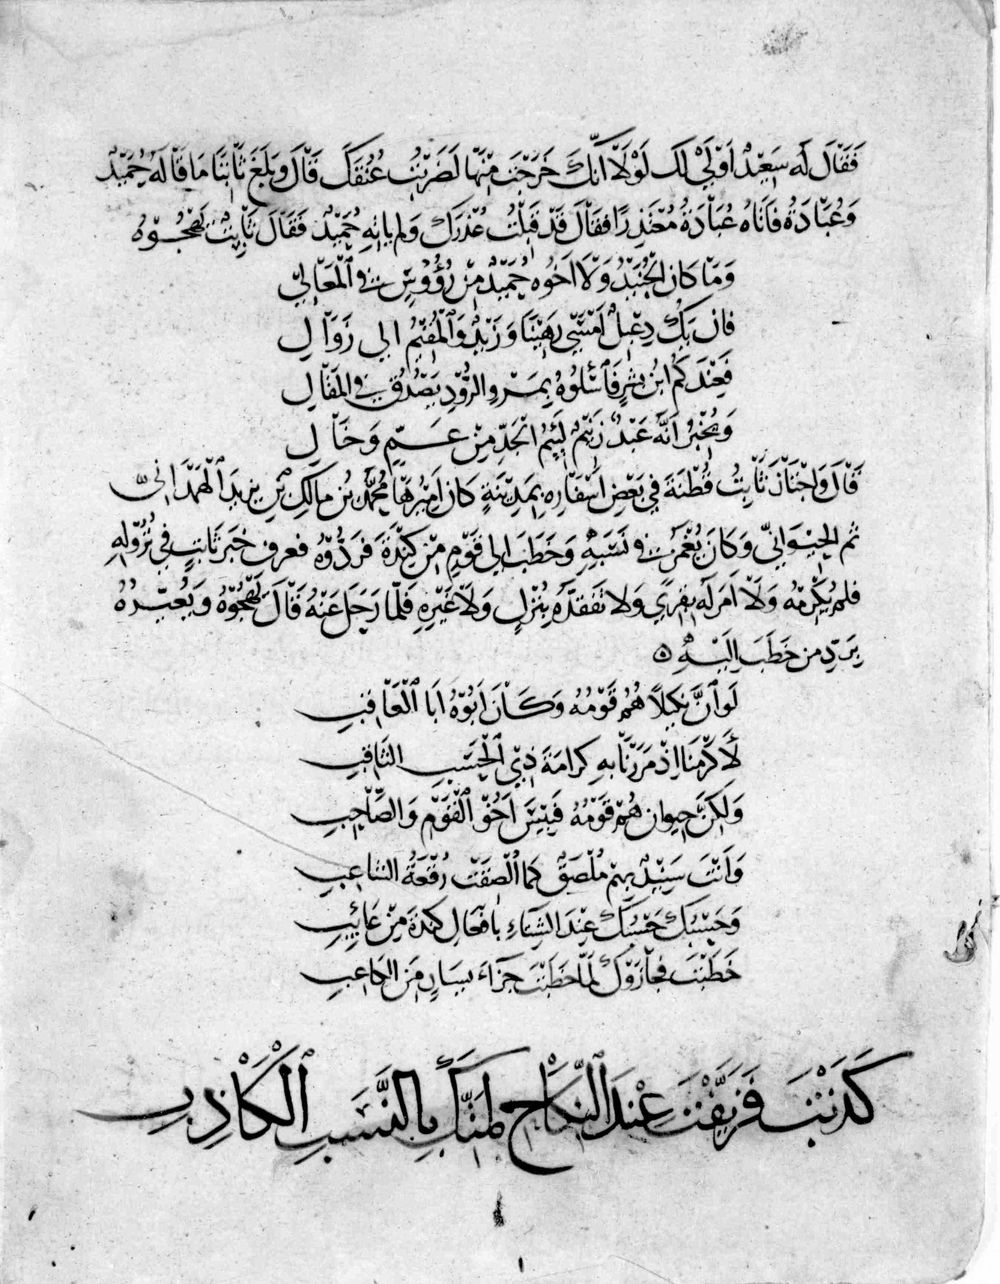 فَقَالَ لَه سَعِيدٌ اَوْلَىٰ لَكَ لَوْلَا اَنَّكَ خَرَجْتَ مِنْهَا لَضَرَبْتُ عُنُقَكَ قَالَ وَبَلَغَ ثَابِتًا مَا قَالَهُ حُمَيْدٌ
وَعُبَادَةُ فَاَتَاهُ عُبَادَةُ مُعْتَذِرًا فَقَالَ قَدْ قَبِلْتُ عُذْرَكَ وَلم يَاتِهِ حُمَيْدٌ فَقَالَ ثَابِتٌ يَهْجُوهُ
وَمَا كَانَ الجُنَيْدُ وَلَا اَخُوهُ حُمَيْدٌ مِنْ رُؤُوسٍ فِي الْمَعَالِي
فان يَكُ دِغْفَلٌ اَمْسَى رَهِيْنًا وَزَيْدٌ وَالْمُقِيمُ الى زَوَالِ
فَعِنْدَكُمُ ابنُ بِشْرٍ فَاسْئلُوهُ بِمَرْوِ الرُّوذِ يَصْدُقُ فِي المَقَالِ
وَيُخْبِرُ اَنَّهُ عَبْدٌ زَنِيمٌ لَئِيمُ الجَدِّ مِنْ عَمٍّ وَخَالِ
قَالَ وَاجْتَازَ ثَابِتُ قُطْنَةَ فِي بَعْضِ اَسْفَارِهِ بِمَدِيْنَةٍ كَانَ اَمِيْرَهَا مُحَمَّدُ بْنُ مَالِكِ بْنِ يزيدَ الْهَمْدَانِىُّ
ثم الخَيْوَانِيّ وَكَانَ يُغْمَزُ فِي نَسَبِهِ وَخَطَبَ الى قَوْمٍ مِنْ كِنْدَةَ فَرَدُّوهُ فعرف خبر ثابت في نُزُولِهِ
فلم يُكْرِمْه وَلَا اَمَرَ لَهُ بِقِرًى وَلا تَفَقَّدَهُ بِنُزُلٍ وَلَا غَيْرِهِ فَلَمَّا رَحَلَ عَنْهُ قَالَ يَهْجُوهُ وَيُعَيِّرُهُ
بِرَدِّ من خَطَبَ اِلَيْهِ ۵
لَو اَنَّ بَكِيلًا هُمُ قَوْمُه وَكَانَ اَبُوهُ اَبَا الْعَاقِبِ
لَاَكْرَمَنَا اِذْ مَرَرْنَا بهِ كَرامَةَ ذِي الْحَسَبِ الثَاقِبِ
وَلٰكِنَّ خيوان هُمْ قَوْمُهُ فَبِئْسَ اَخُو الْقَوْم وَالصَّاحِبِ
وَاَنْتَ سَنِيدٌ بِهِمْ مُلْصَقٌ كمَا اُلْصِقَتْ رُقْعَةُ الشاعبِ
وَحَسْبُكَ حَسْبُكَ عِنْدَ الثَّنَاءِ بِاَفْعَالِ كِنْدَةَ مِنْ عَائِبِ
خَطَبْتَ فَجازَوْكَ لَمَّا خَطَبْتَ جَزَاءَ يَسَارٍ مِنَ الكَاعِبِ
كَذَبْتَ فَزَيَّفْتَ عِنْدَ النِّكَاحِ لِمَتِّكَ بِالنَّسَبِ الْكَاذِبِ